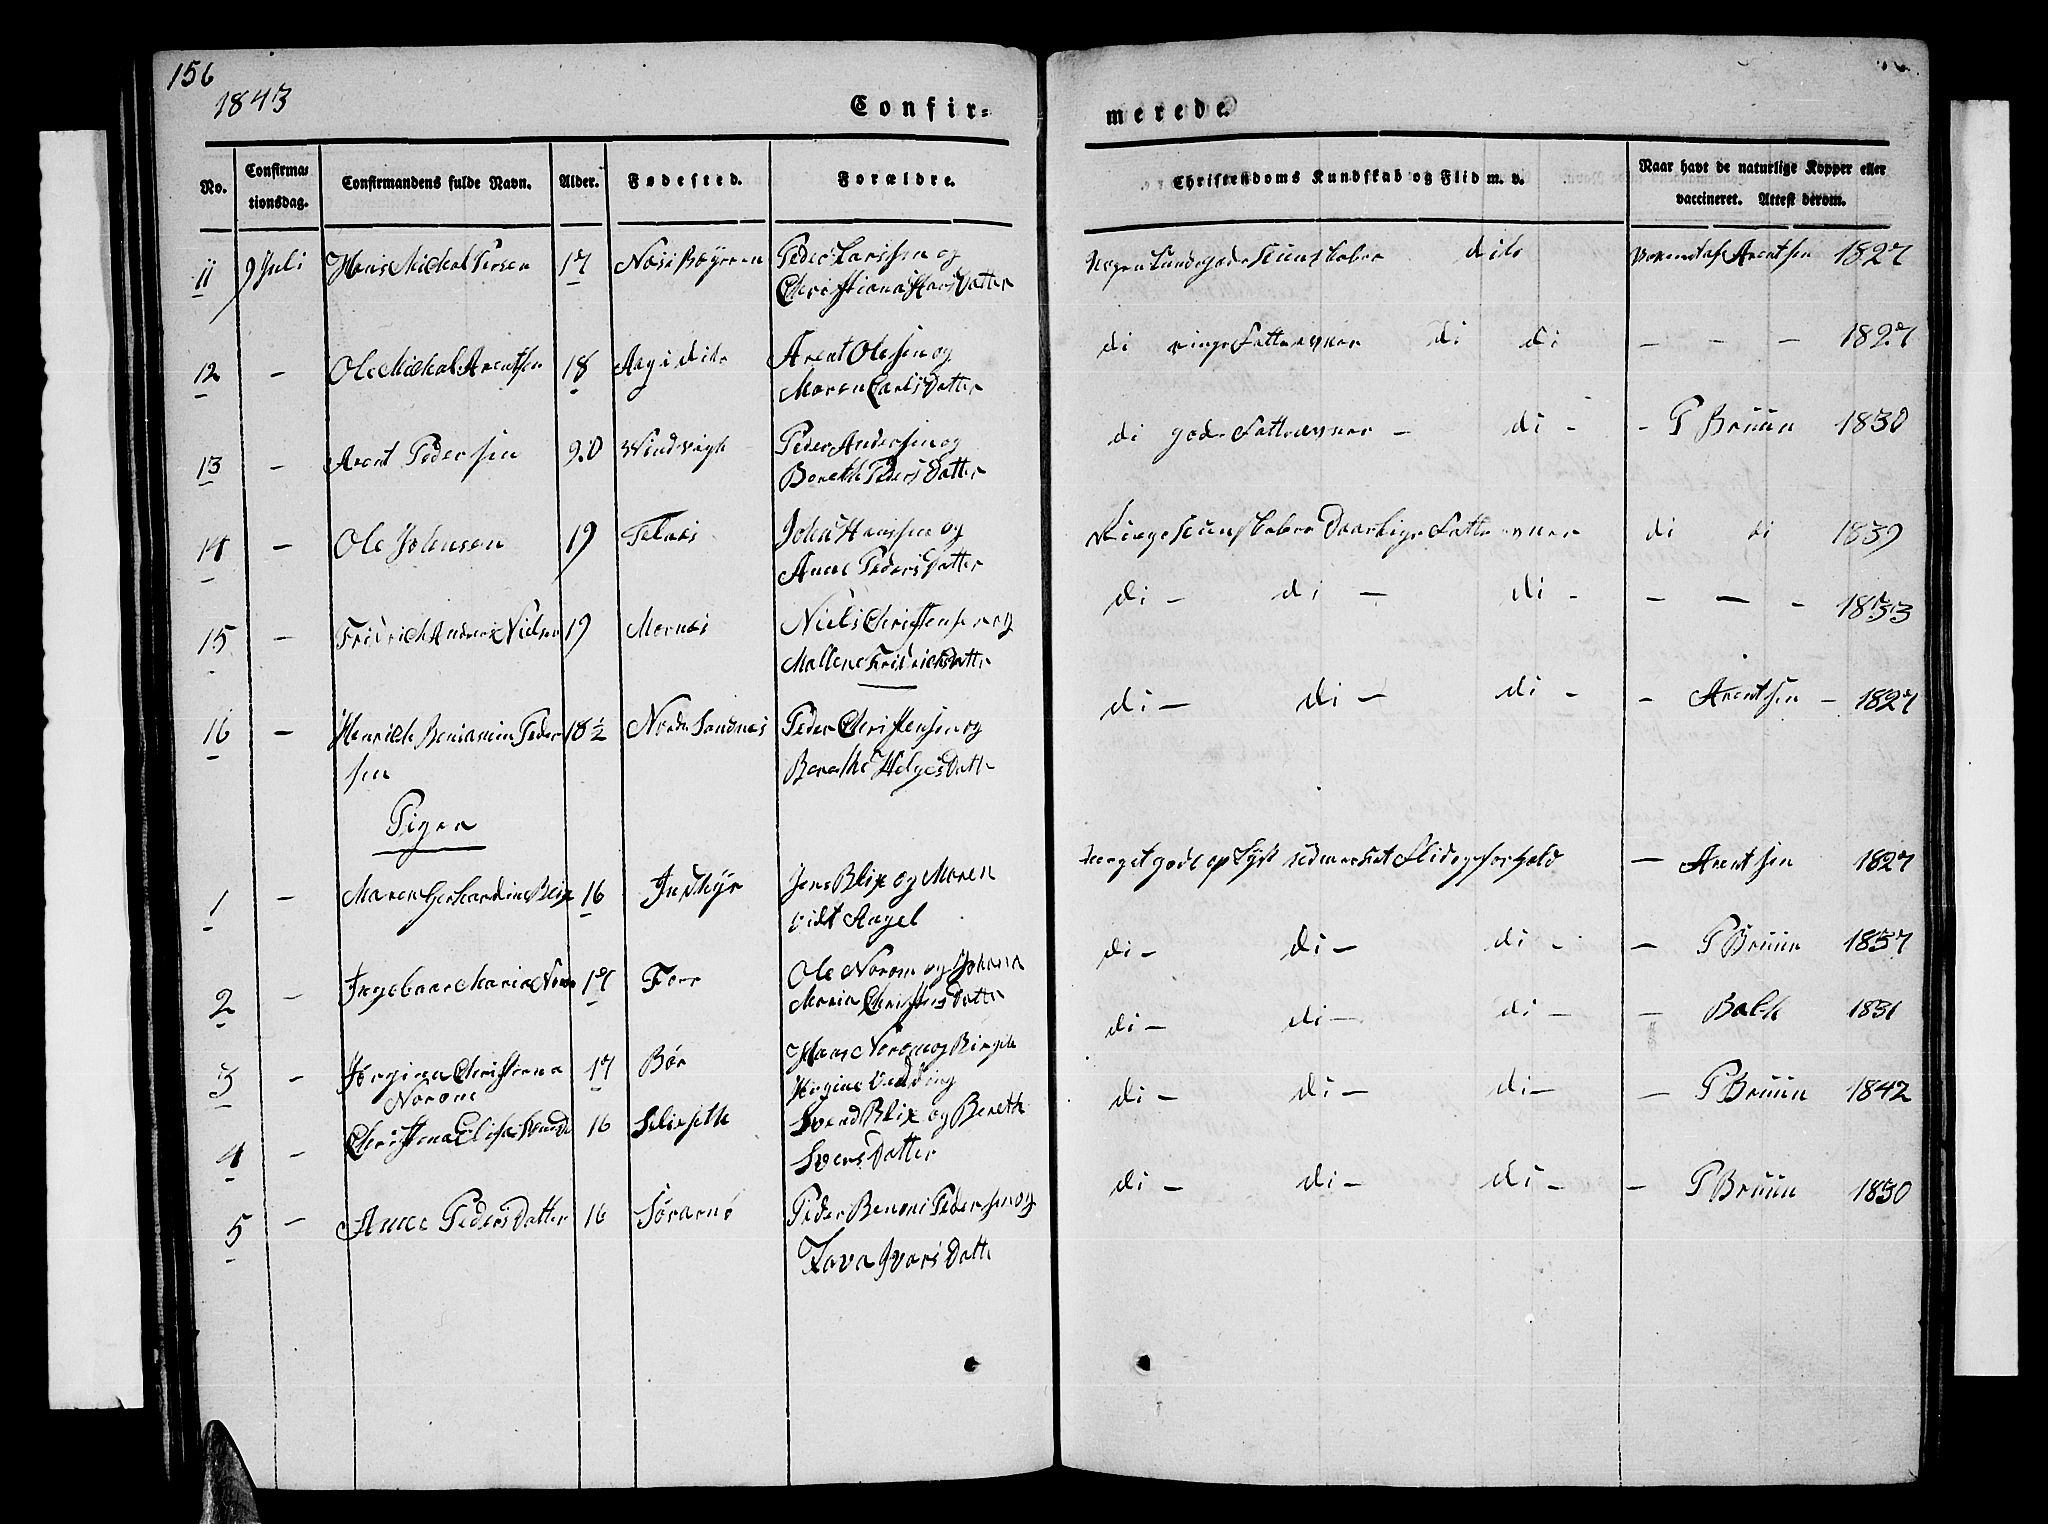 156
1843
Confir=
merede.
No.
Confirma=
tionsdag.
Confirmandens fulde Navn.
Alder.
Fødested.
Forældre.
Christendoms Kundskab og Flid m. v.
Naar havt de naturlige Kopper eller
vaccineret. Attest derom.
11 9 Juli Hans Mickal 17 Peder Larssen og
Christiana Hans Datter
gode Kunskaber dito Arentsen 1827
12 - Ole Mickal Arentsen 18 Arent Olessen og
Maren Carls Datter
di ringe Fatteevner di di - - - 1827
13 - Arent Pedersen 20 Peder Anderssen og
Bereth Peders Datter
di gode Fatteevner - di - - P Bruun 1830
14 - Ole Johnsen 19 Telnes John Hanssen og
Anne Peders Datter
Ringe Kunskaber Daarlige Fatteevner di di 1839
15 - Fridrich Andreas Nielsen 19 Mornes Niels Christensen og
Mallene Fridrichsdatte
di - di - di - - - - 1833
16 - Henrich Beniamin Peder 18½ Nordr Sandnes Peder Christensen og
sen Berethe Helges Datte
di - di - di - - Arentsen - 1827
Piger
1 - Maren Gerhardine Blix 16 Jens Blix og Maren
vidt Angel
Meget gode Flid og forhold - Arentsen 1827
2 - Ingebaar Maria 17 Forr Ole Norom og Johana
Maria Christens Datte
di - di - di - - P Bruun 1837
3 - Jørgina Christiana 17 Bør Hans Norom og Birgit
Norome
di - di - di - - Balk 1831
4 - Christina Elisa 16 Svend Blix og Bereth
Svens Datter
di - di - di - - P Bruun 1842
5 - Anne Peders Datter 16 Sørarnø Peder Benoni Pedersen og
Ivars Datte
di - di - di - - P Bruun 1830